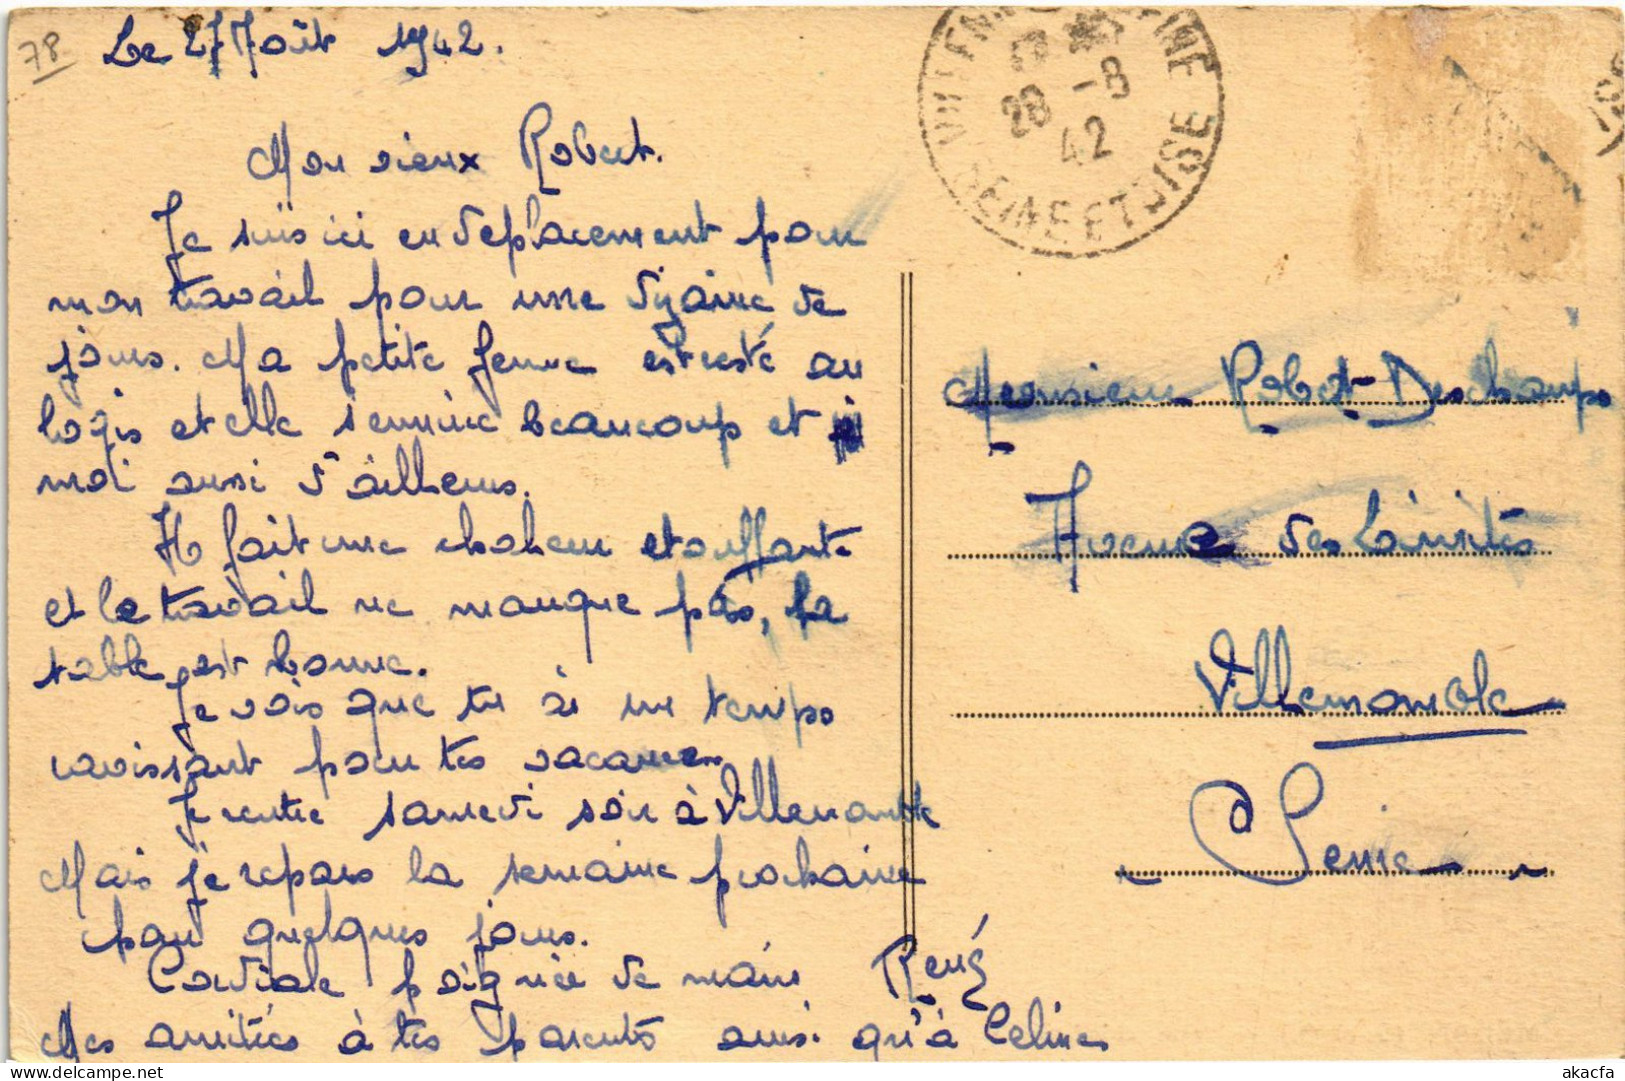 78
Le 27 Août 1942.
Mon vieux Robert.
Je suis ici en déplacement pour
mon travail pour une dizaine de
jours. Ma petite femme est resté au
logis et elle s'ennuie beaucoup et
moi aussi d'ailleurs.
Il fait une chaleur etouffante
et le travail ne manque pas, la
table est bonne.
Je vois que tu as un temps
ravissant pour tes vacances.
Je rentre samedi soir à Villemomble
Mais je repars la semaine prochaine
pour quelques jours.
Cordiale poignée de main René
Mes amitiés à tes parents ainsi qu'à Celine
28 -8
42
SEINE ET OISE
Monsieur Robert Deschamps
Avenue des
Villemomble
Seine
www.akacfa.com
akacfa